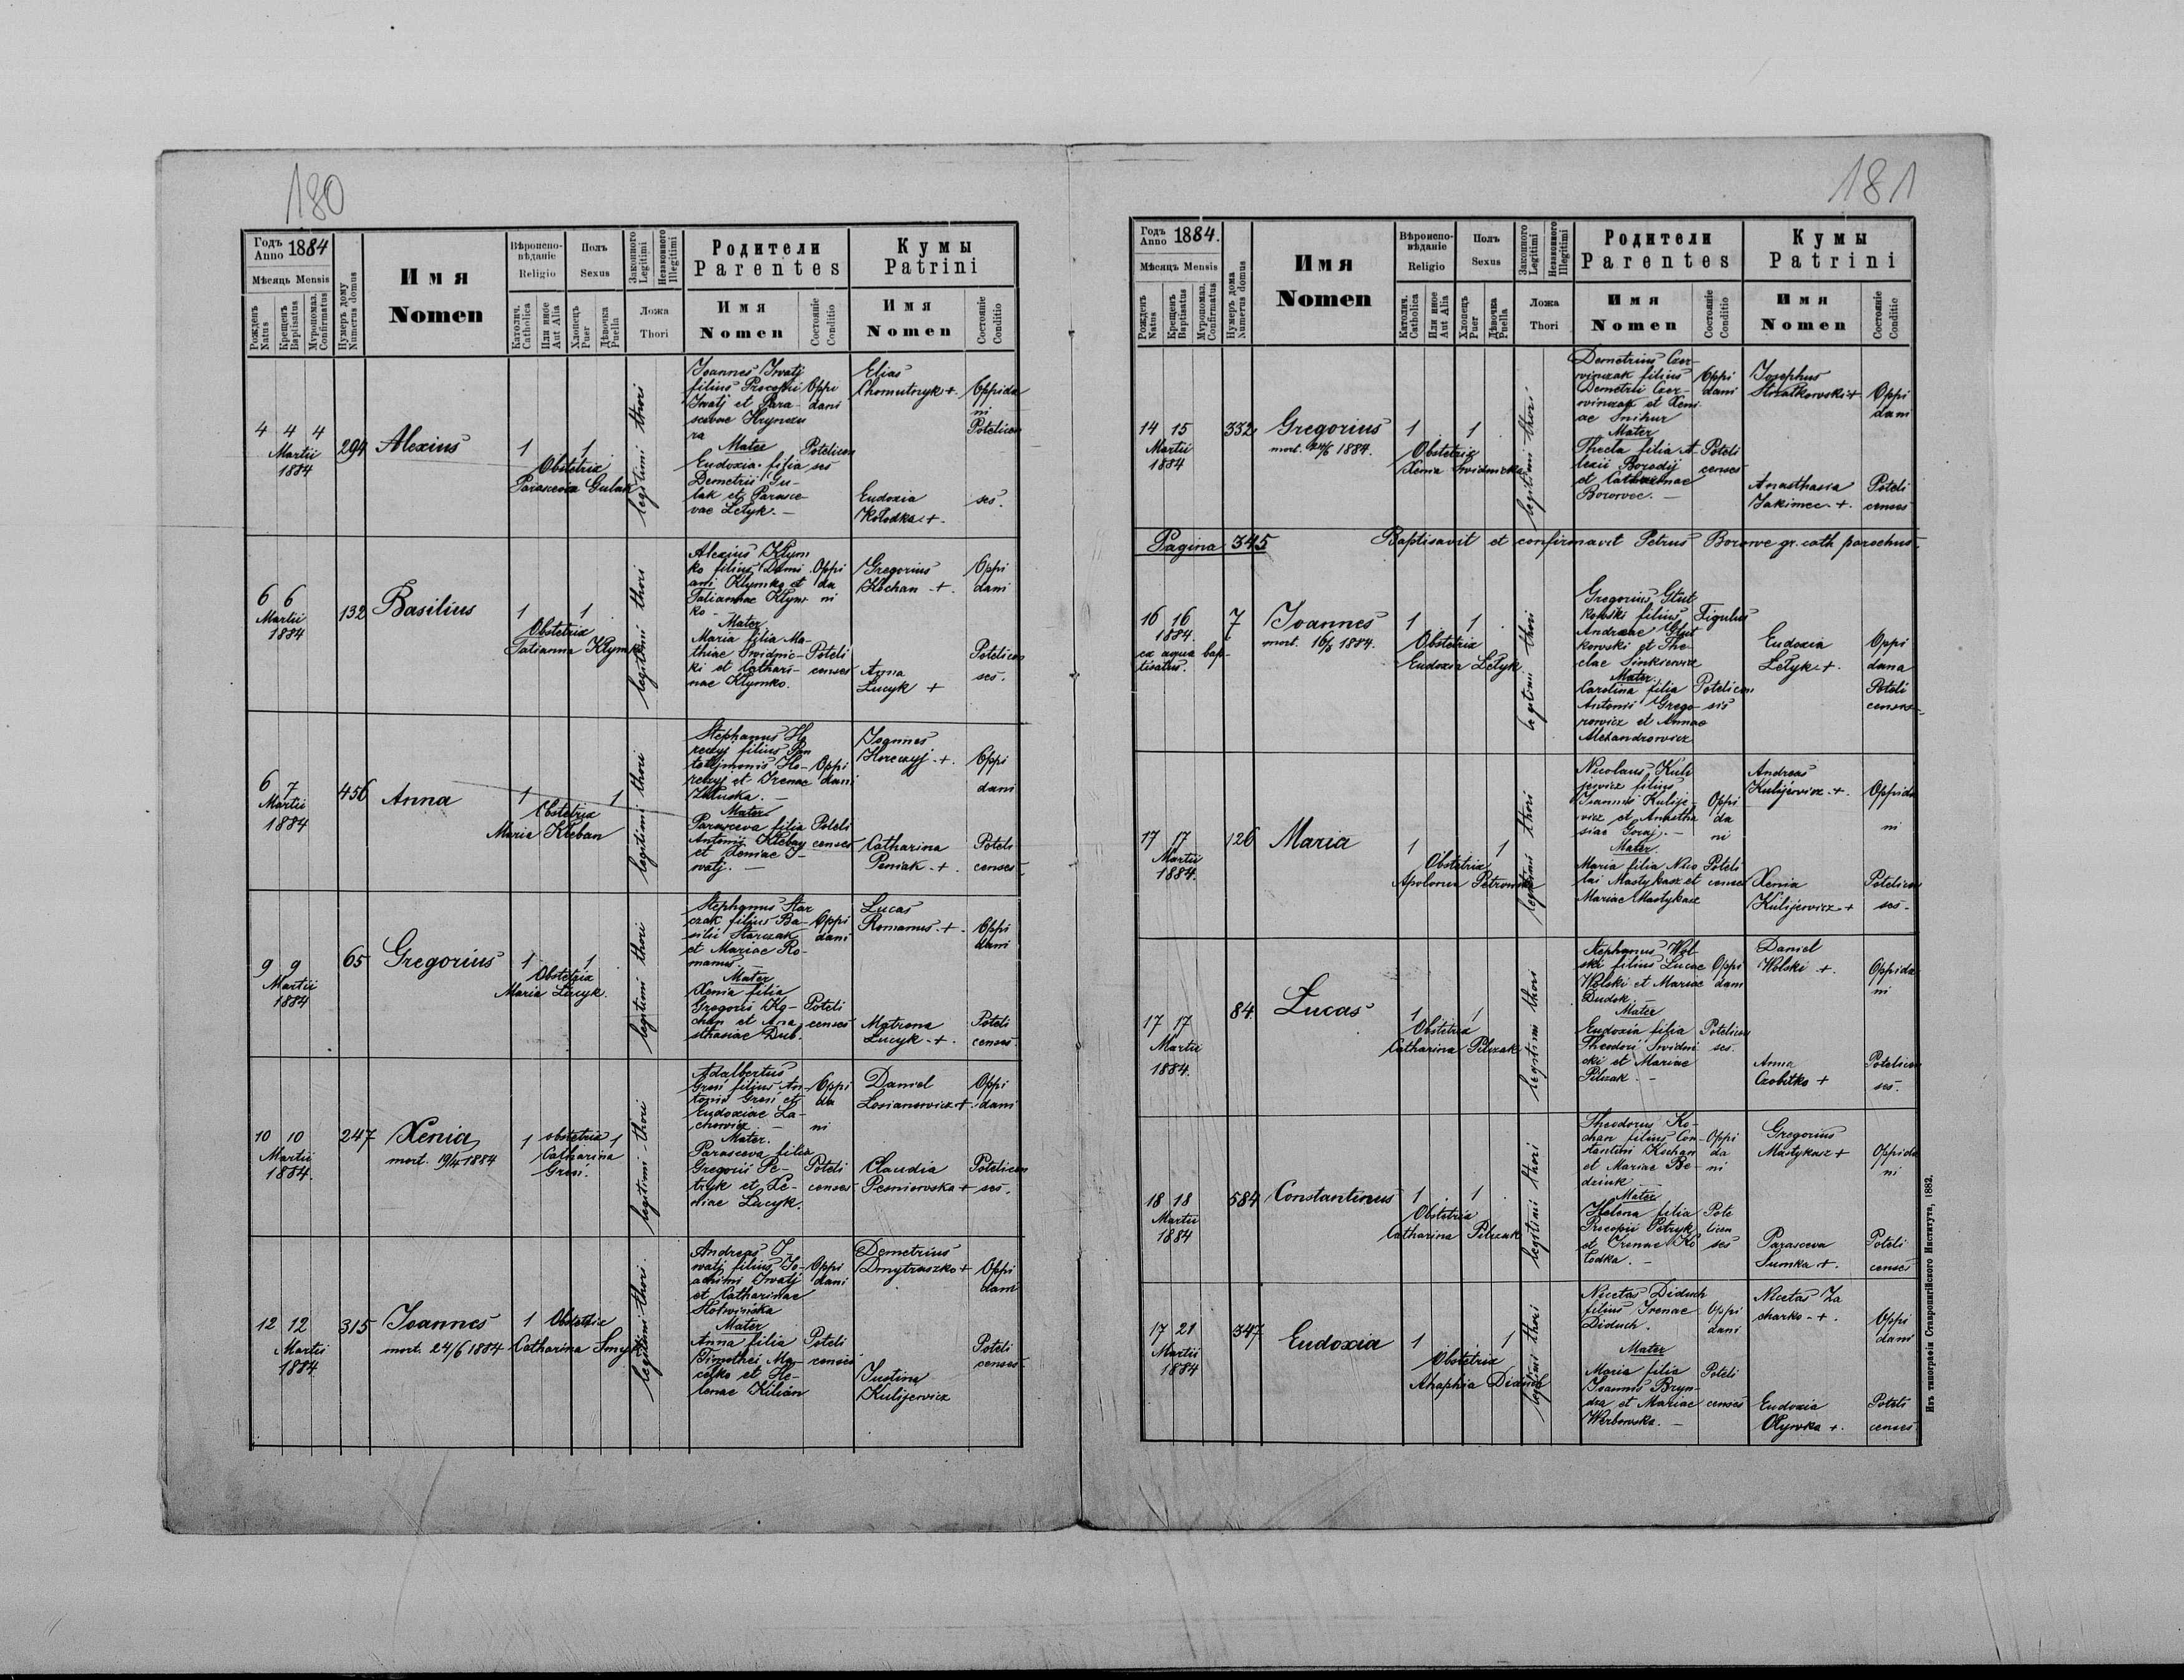 180
Годъ
Anno 1884
Мѣсяцъ Mensis
Рожденъ
Natus
Крещенъ
Baptisatus
Мѵропомаз.
Confirmatus
Нумеръ дому
Numerus domus
Имя
Nomen
Вѣроиспо-
вѣданіе
Religio
Католич.
Catholica
Или иное
Aut Alia
Полъ
Sexus
Хлопецъ
Puer
Дѣвочка
Puella
Законного
Legitimi
Незаконного
Illegitimi
Ложа
Thori
Родители
Parentes
Имя
Nomen
Состояніе
Conditio
Кумы
Patrini
Имя
Nomen
Состояніе
Conditio
4 4 4
Martii
1884
294
Alexius
1 1
Obstetrix
Parasceva Gulak
legitimi thori
Joannes Iwatj
filius Procopii
Iwatj et Para-
scevae Hrynczu
ra
Mater
Eudoxia filia
Demetrii Gu-
lak et Parasce-
vae Letyk. –
Oppi
dani
Potelicen
ses
Elias
Chomutnyk +.
Eudoxia
Kołodka +.
Oppida
ni
Potelicen
ses.
6 6
Martii
1884
132
Basilius
1 1
Obstetrix
Tatianna Klymko
legitimi thori
Alexius Klym
ko filius Dami
ani Klymko et
Tatiannae Klym
ko –
Mater
Maria filia Ma-
thiae Swidnic-
ki et Cathari-
nae Klymko.
Oppi
da
ni
Poteli
censes
Gregorius
Kochan +.
Anna
Lucyk +
Oppi
dani
Potelicen
ses.
6 7
Martii
1884
456
Anna
1 1
Obstetrix
Maria Kleban
legitimi thori
Stephanus Ho
reczyj filius Pan
totejmonis Ho-
reczyj et Irenae
Mater
Parasceva filia
Antonij Kleban
et Xeniae I-
watj. –
Oppi
dani
Poteli
censes
Joannes
Horeczyj +.
Catharina
Peniak +.
Oppi
dani
Poteli
censes
9 9
Martii
1884
65
Gregorius
1 1
Obstetrix
Maria Lucyk.
legitimi thori
Stephanus Star
czak filius Ba-
silii Starczak
et Mariae Ro-
manus. –
Mater
Xenia filia
Gregorii Ko-
chan et Ana
sthasiae Dub.
Oppi
dani
Poteli
censes
Lucas
Romanus +.
Matrona
Lucyk +.
Oppi
dani
Poteli
censes.
10 10
Martii
1884.
247
Xenia
mort. 19/4 1884
1 obstetrix 1
Catharina
Grosi.
legitimi thori
Adalbertus
Grosi filius An-
tonii Grosi et
Eudoxiae La-
chowicz. –
Mater.
Parasceva filia
Gregorii Pe-
tryk et Xe-
niae Lucyk.
Oppi
da
ni
Poteli
censes
Daniel
Losianowicz +
Claudia
Pesniowska +
Oppi
dani
Potelicen
ses.
12 12
Martii
1884
315
Joannes
mort. 24/6 1884
1 Obstetrix
Catharina Smyk
legitimi thori.
Andreas I-
watj filius Jo-
achimi Iwatj
et Catharinae
Slotwinska
Mater
Anna filia
Timothei Ma-
celko et He-
lenae Kilian
Oppi
dani
Poteli
censes
Demetrius
Dmytruszko +
Justina
Kulijewicz
Oppi
dani
Poteli
censes
181
Годъ
Anno 1884.
Мѣсяцъ Mensis
Рожденъ
Natus
Крещенъ
Baptisatus
Мѵропомаз.
Confirmatus
Нумеръ дома
Numerus domus
Имя
Nomen
Вѣроиспо-
вѣданіе
Religio
Католич.
Catholica
Или иное
Aut Alia
Полъ
Sexus
Хлопецъ
Puer
Дѣвочка
Puella
Законного
Legitimi
Незаконного
Illegitimi
Ложа
Thori
Родители
Parentes
Имя
Nomen
Состояніе
Conditio
Кумы
Patrini
Имя
Nomen
Состояніе
Conditio
14 15
Martii
1884
332
Gregorius
mort. 1884.
1 1
Obstetrix
Xenia Swidnicka
legitimi thori
Demetrius Czer-
winczak filius
Demetrii Czer-
winczak et Xeni
ae Snihur
Mater
Thecla filia A-
lexii Borodij
et Catharinae
Borowec. –
Oppi
dani
Poteli
censes
Josephus
Strzalkowski +
Anasthasia
Jakimec +.
Oppi
dani
Poteli
censes
Pagina 345
Baptisavit et confirmavit Petrus Borowe gr. cath parochus.
16 16
1884.
ex aqua bap-
tisatus.
7
Joannes
mort. 16/3 1884.
1 1
Obstetrix
Eudoxia Letyk
legitimi thori
Gregorius Glut
kowski filius
Andreae Glut
kowski et The-
clae Sinkiewicz
Mater.
Carolina filia
Antonii Grego-
rowicz et Annae
Alexandrowicz
Figulus
Potelicen
sis
Eudoxia
Letyk +.
Oppi
dana
Poteli
censes
17 17
Martii
1884.
126
Maria
1 1
Obstetrix
Apolonia Petrowska
legitimi thori
Nicolaus Kuli
jewicz filius
Joannis Kulije-
wicz et Anastha
siae Goraj. –
Mater.
Maria filia Nico
lai Mastykasz et
Mariae Mastykasz
Oppi
da
ni
Poteli
censes
Andreas
Kulijewicz +.
Xenia
Kulijewicz +
Oppida
ni
Potelicen
ses.
17 17
Martii
1884.
84.
Lucas
1 1
Obstetrix
Catharina Pilczak
legitimi thori
Stephanus Wol-
ski filius Lucae
Wolski et Mariae
Dudok. –
Mater
Eudoxia filia
Theodori Swidni
cki et Mariae
Pilczak. –
Oppi
dani
Potelicen
ses.
Daniel
Wolski +.
Anna
Czobitko +
Oppida
ni
Potelicen
ses.
18 18
Martii
1884
584
Constantinus
1 1
Obstetrix
Catharina Pilczak
legitimi thori
Theodorus Ko-
chan filius Con-
stantini Kochan
et Mariae Be-
dziuk –
Mater
Helena filia
Procopii Petryk
et Irenae Ko
lodka. –
Oppi
da
ni
Pote
licen
ses
Gregorius
Mastykasz +
Parasceva
Sumka +.
Oppida
ni
Poteli
censes
17 21
Martii
1884
347
Eudoxia
1 1
Obstetrix
Ahaphia Diduch
legitimi thori
Nicetas Diduch
filius Irenae
Diduch.
Mater
Maria filia
Joannis Bryn-
dza et Mariae
Werbowska. –
Oppi
dani
Poteli
censes
Nicetas Za
charko +.
Eudoxia
Olywka +.
Oppi
dani
Poteli
censes
Изъ типографіи Ставропигійского Института, 1882.